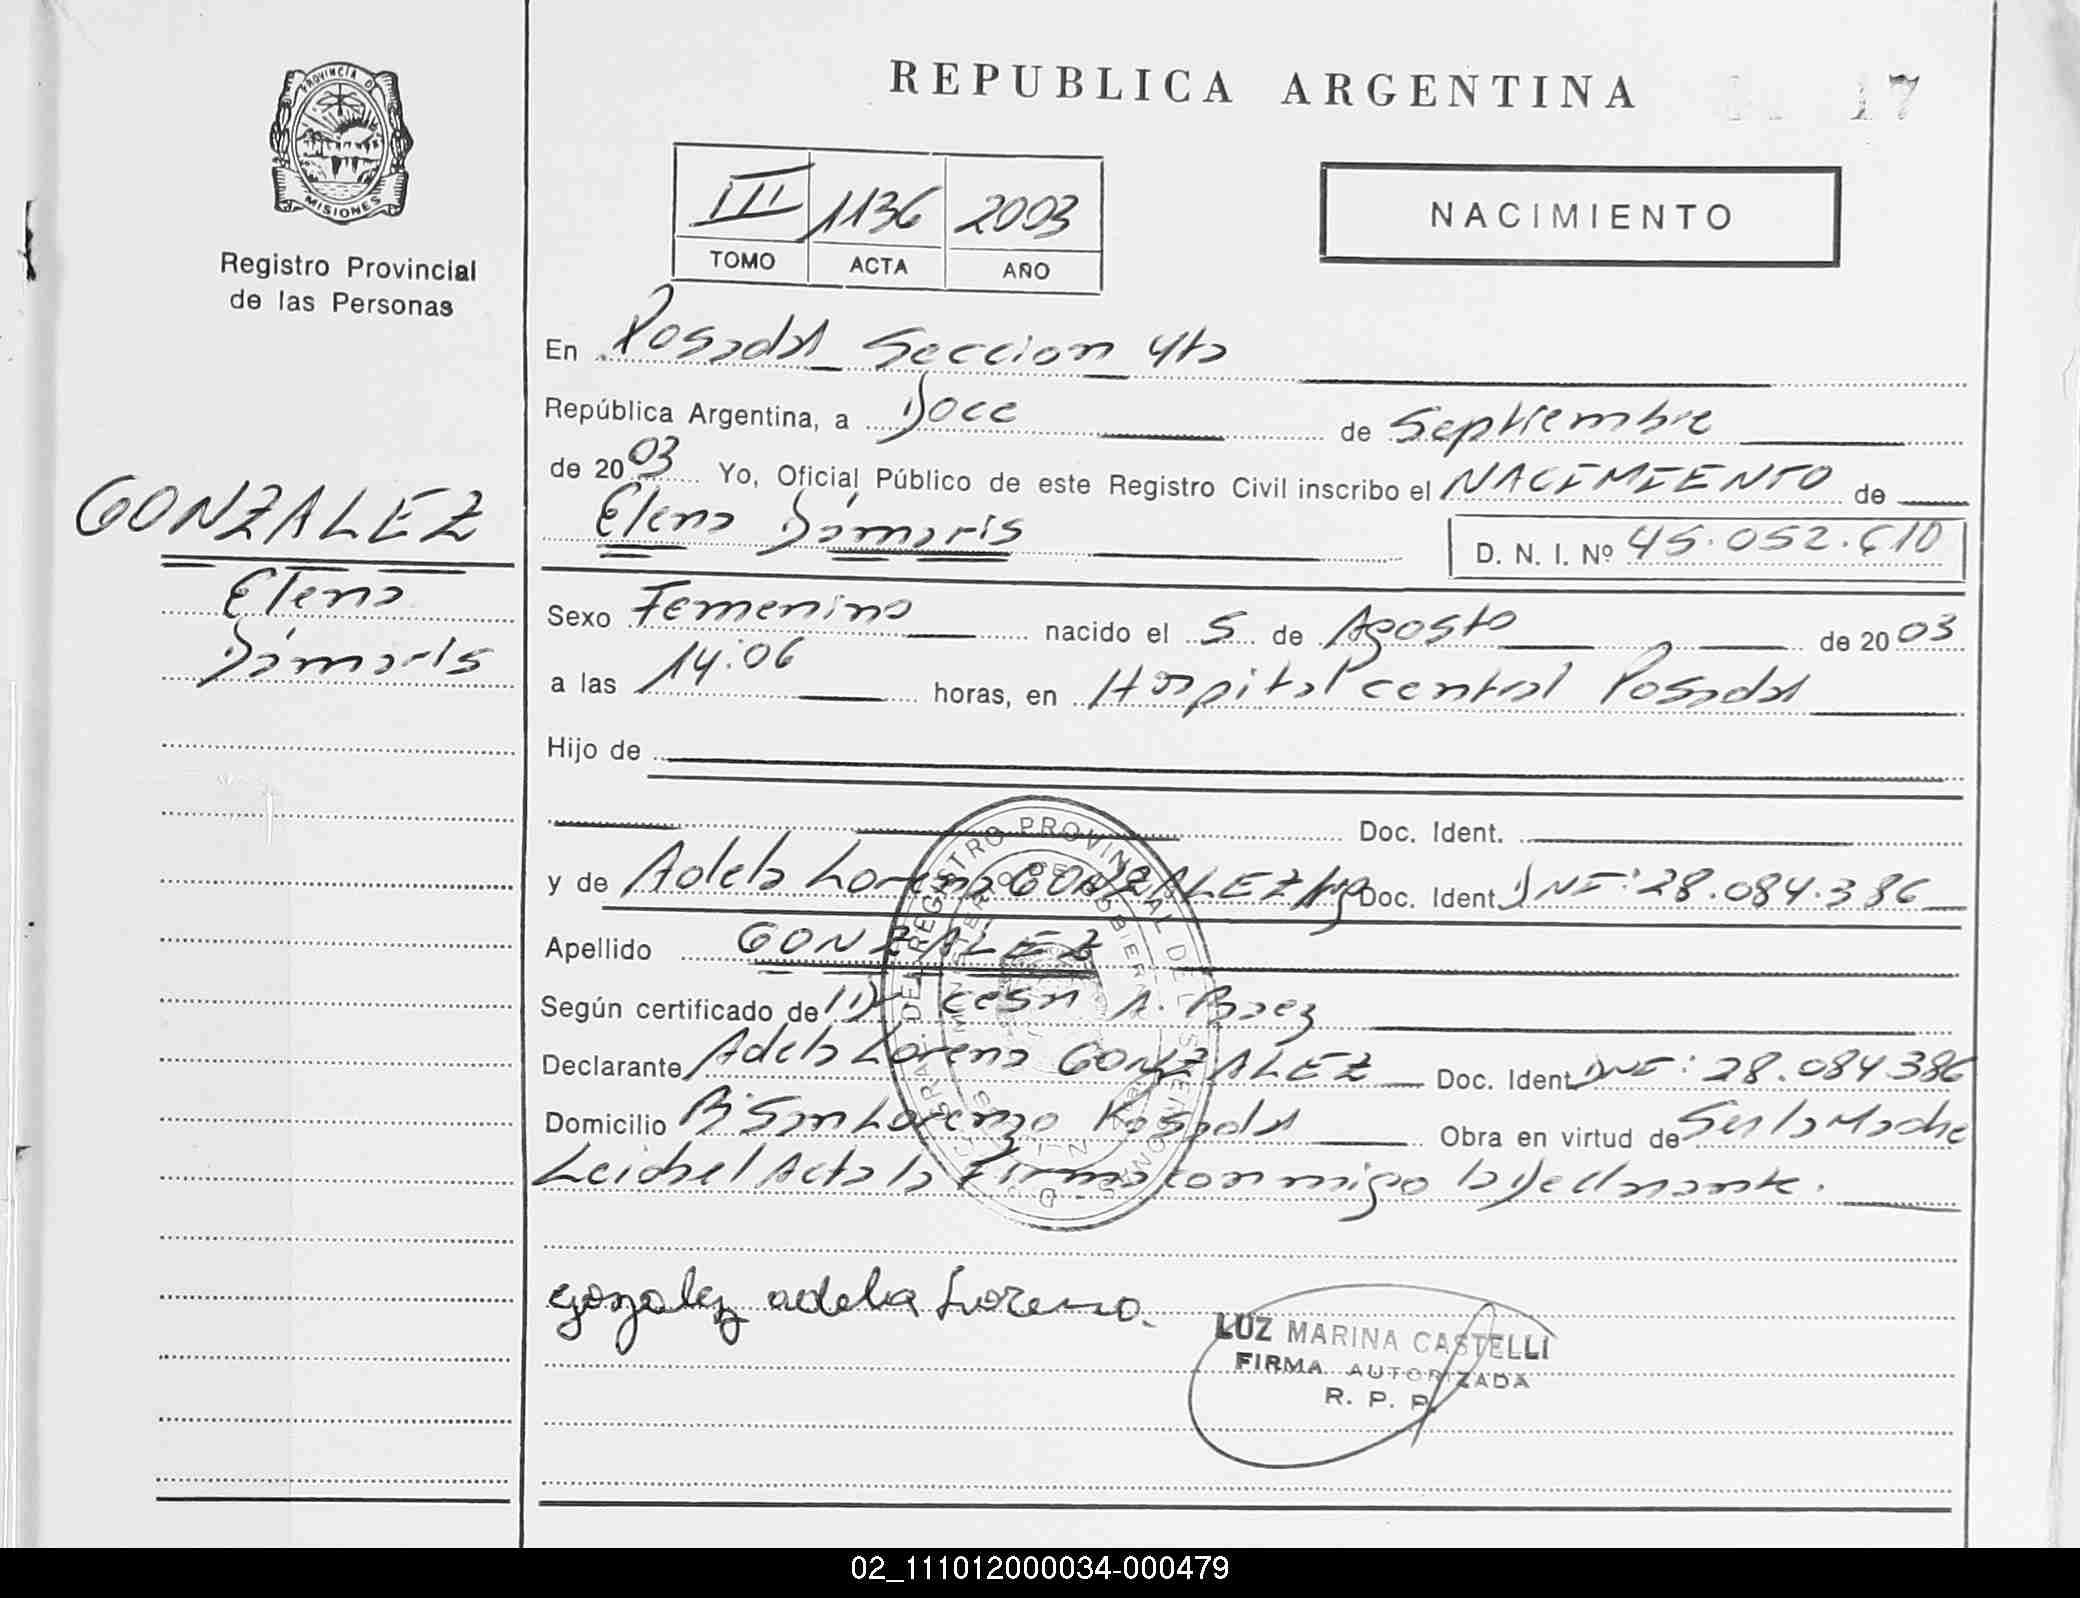 REPUBLICA ARGENTINA
17
PROVINCIA D
MISIONES
Registro Provincial
de las Personas
III 1136 2003
TOMO ACTA AÑO
NACIMIENTO
En Posadas Seccion 4ta
República Argentina, a Doce de Septiembre
de 2003 Yo, Oficial Público de este Registro Civil inscribo el NACIMIENTO de
Elena Dámaris D. N. I. Nº 45.052.610
GONZALEZ
Elena
Dámaris
Sexo Femenino nacido el 5 de Agosto de 2003
a las 14:06 horas, en Hospital central Posadas
Hijo de
Doc. Ident.
y de Adela Lorena GONZALEZ Doc. Ident. DNI: 28.084.386
Apellido GONZALEZ
Según certificado de Dr Cesar A. Baez
Declarante Adela Lorena GONZALEZ Doc. Ident. DNI: 28.084386
Domicilio Bº San Lorenzo Posadas Obra en virtud de Ser la Madre
Leida el Acta la Firma conmigo la Declarante.
gonzalez adela Lorena.
LUZ MARINA CASTELLI
FIRMA AUTORIZADA
R. P. P.
02_111012000034-000479